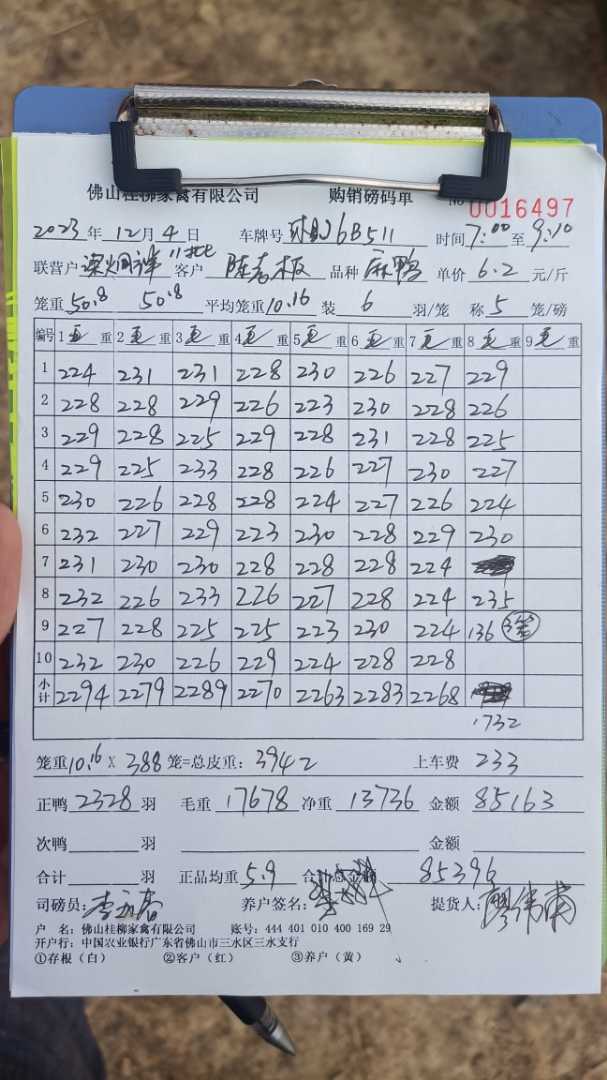 佛山桂柳家禽有限公司 购销磅码单 No 0016497
2023年12月4日 车牌号 6B511 时间7:00至9:10
联营户 客户 陈老板 品种 麻鸭 单价 6.2 元/斤
笼重50.8 50.8 平均笼重10.16 装 6 羽/笼 称 5 笼/磅
编号 1毛重 2毛重 3毛重 4毛重 5毛重 6毛重 7毛重 8毛重 9毛重
1 224 231 231 228 230 226 227 229
2 228 228 229 226 223 230 228 226
3 229 228 225 229 228 231 228 225
4 229 225 233 228 226 227 230 227
5 230 226 228 228 224 227 226 224
6 232 227 229 223 230 228 229 230
7 231 230 230 228 228 228 224
8 232 226 233 226 227 228 224 235
9 227 228 225 225 223 230 224 136 3笼
10 232 230 226 229 224 228 228
小计 2294 2279 2289 2270 2263 2283 2268
1732
笼重10.16 X 388 笼=总皮重:3942 上车费 233
正鸭 2328 羽 毛重 17678 净重 13736 金额 85163
次鸭 羽 金额
合计 羽 正品均重 5.9 合计总金额 85396
司磅员: 养户签名: 提货人:廖伟南
户 名:佛山桂柳家禽有限公司 账号:444 401 010 400 169 29
开户行:中国农业银行广东省佛山市三水区三水支行
①存根(白) ②客户(红) ③养户(黄)